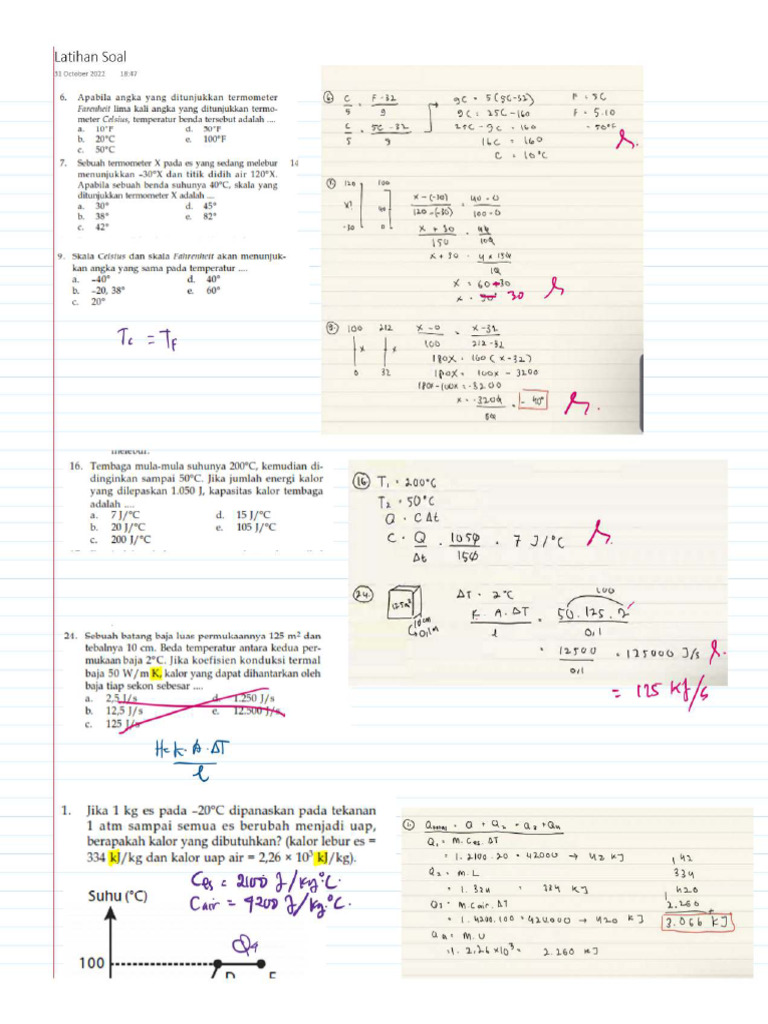 Latihan Soal
31 October 2022 18:47
6. Apabila angka yang ditunjukkan termometer
Farenheit lima kali angka yang ditunjukkan termo-
meter Celsius, temperatur benda tersebut adalah ....
a. 10°F d. 50°F
b. 20°C e. 100°F
c. 50°C
7. Sebuah termometer X pada es yang sedang melebur 14
menunjukkan –30°X dan titik didih air 120°X.
Apabila sebuah benda suhunya 40°C, skala yang
ditunjukkan termometer X adalah ....
a. 30° d. 45°
b. 38° e. 82°
c. 42°
9. Skala Celsius dan skala Fahrenheit akan menunjuk-
kan angka yang sama pada temperatur ....
a. –40° d. 40°
b. –20, 38° e. 60°
c. 20°
Tc = TF
6 C/5 = F-32/9
C/5 = 5C-32/9
9C = 5(5C-32)
9C = 25C-160
25C-9C = 160
16C = 160
C = 10°C
F = 5C
F = 5.10
= 50°C
120 100
X? 40
-30 0
x-(-30)/120-(-30) = 40-0/100-0
x+30/150 = 40/100
x+30 = 4 x 150/10
x = 60-30
x = 30
9. 100 212
x x
0 32
x-0/100 = x-32/212-32
180x = 100(x-32)
180x = 100x - 3200
180x-100x = -3200
x = -3200/80 = -40°
16. Tembaga mula-mula suhunya 200°C, kemudian di-
dinginkan sampai 50°C. Jika jumlah energi kalor
yang dilepaskan 1.050 J, kapasitas kalor tembaga
adalah ....
a. 7 J/°C d. 15 J/°C
b. 20 J/°C e. 105 J/°C
c. 200 J/°C
16 T1 = 200°C
T2 = 50°C
Q = C Δt
C = Q/Δt = 1050/150 = 7 J/°C
24. Sebuah batang baja luas permukaannya 125 m² dan
tebalnya 10 cm. Beda temperatur antara kedua per-
mukaan baja 2°C. Jika koefisien konduksi termal
baja 50 W/m K, kalor yang dapat dihantarkan oleh
baja tiap sekon sebesar ....
a. 2,5 J/s d. 1.250 J/s
b. 12,5 J/s e. 12.500 J/s
c. 125 J/s
H = k.A.ΔT/l
24. 125m² 10cm 0,1m
ΔT = 2°C
k.A.ΔT/l = 50.125.2/0,1
100
= 12500/0,1 = 125000 J/s
= 125 kJ/s
1. Jika 1 kg es pada –20°C dipanaskan pada tekanan
1 atm sampai semua es berubah menjadi uap,
berapakah kalor yang dibutuhkan? (kalor lebur es =
334 kJ/kg dan kalor uap air = 2,26 × 10³ kJ/kg).
Ces = 2100 J/kg°C.
Cair = 4200 J/kg°C.
Suhu (°C)
Q4
100
D E
Q1 = m.Ces.ΔT
= 1.2100.20 = 42000 → 42 kJ
Q2 = m.L
= 1.334 = 334 kJ
Q3 = m.Cair.ΔT
= 1.4200.100 = 420.000 → 420 kJ
Q4 = m.U
= 1.2,26×10³ = 2.260 kJ
42
334
420
2.260
3.066 kJ